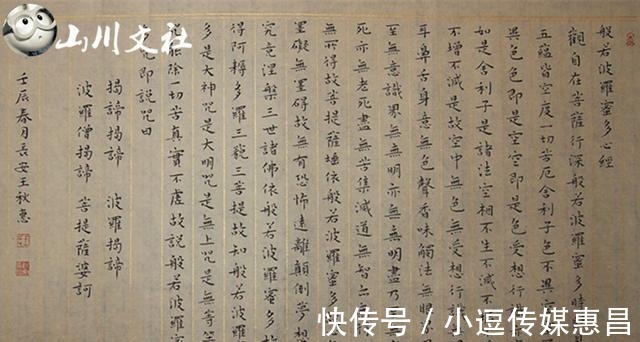 山川文社
般若波羅蜜多心經
觀自在菩薩行深般若波羅蜜多時
五蘊皆空度一切苦厄舍利子色不異
異色色即是空空即是色受想行
如是舍利子是諸法空相不生不滅不
不增不減是故空中無色無受想行
耳鼻舌身意無色聲香味觸法無
至無意識界無無明亦無無明盡乃
死亦無老死盡無苦集滅道無智
無所得故菩提薩埵依般若波羅蜜多
罣礙無罣礙故無有恐怖遠離顛倒夢想
究竟涅槃三世諸佛依般若波羅蜜多故
得阿耨多羅三藐三菩提故知般若波羅
多是大神咒是大明咒是無上咒是無等
能除一切苦真實不虛故說般若波羅
即說咒曰
揭諦揭諦 波羅揭諦
波羅僧揭諦 菩提薩婆訶
壬辰春月長安王秋惠
快传号/小逗传媒惠昌